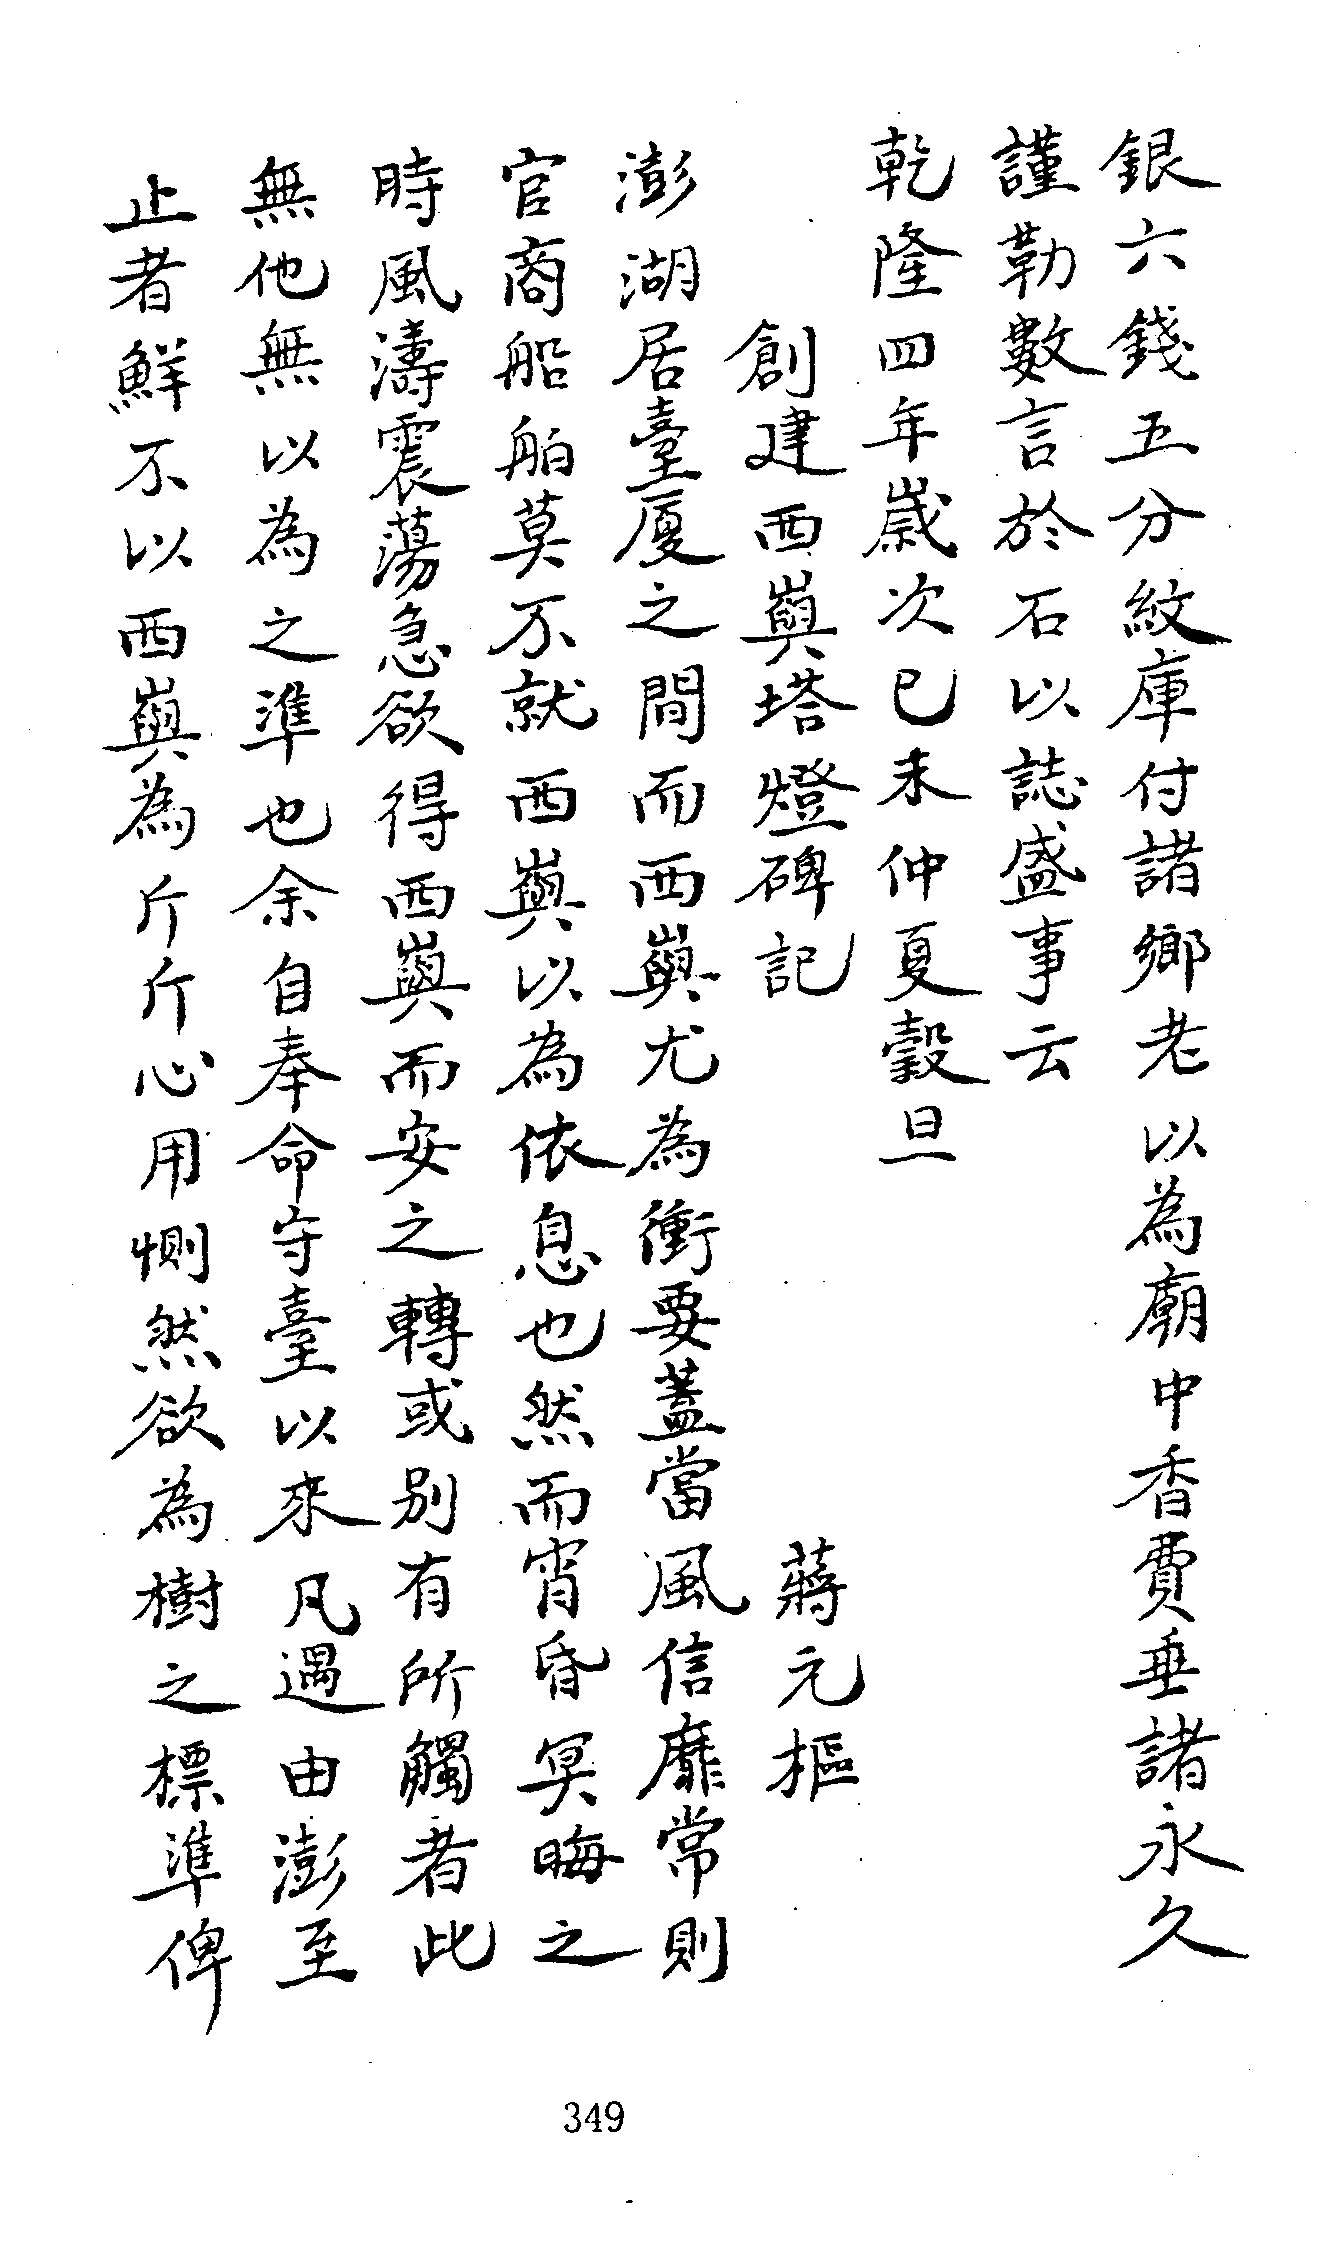 銀六錢五分紋庫付諸鄉老以為廟中香費垂諸永久
謹勒數言於石以誌盛事云
乾隆四年歲次已未仲夏穀旦
創建西嶼塔燈碑記 蔣元樞
澎湖居臺厦之間而西嶼尤為衝要蓋當風信靡常則
官商船舶莫不就西嶼以為依息也然而宵昏冥晦之
時風濤震蕩急欲得西嶼而安之轉或别有所觸者此
無他無以為之準也余自奉命守臺以來凡遇由澎至
止者鮮不以西嶼為斤斤心用惻然欲為樹之標準俾
349